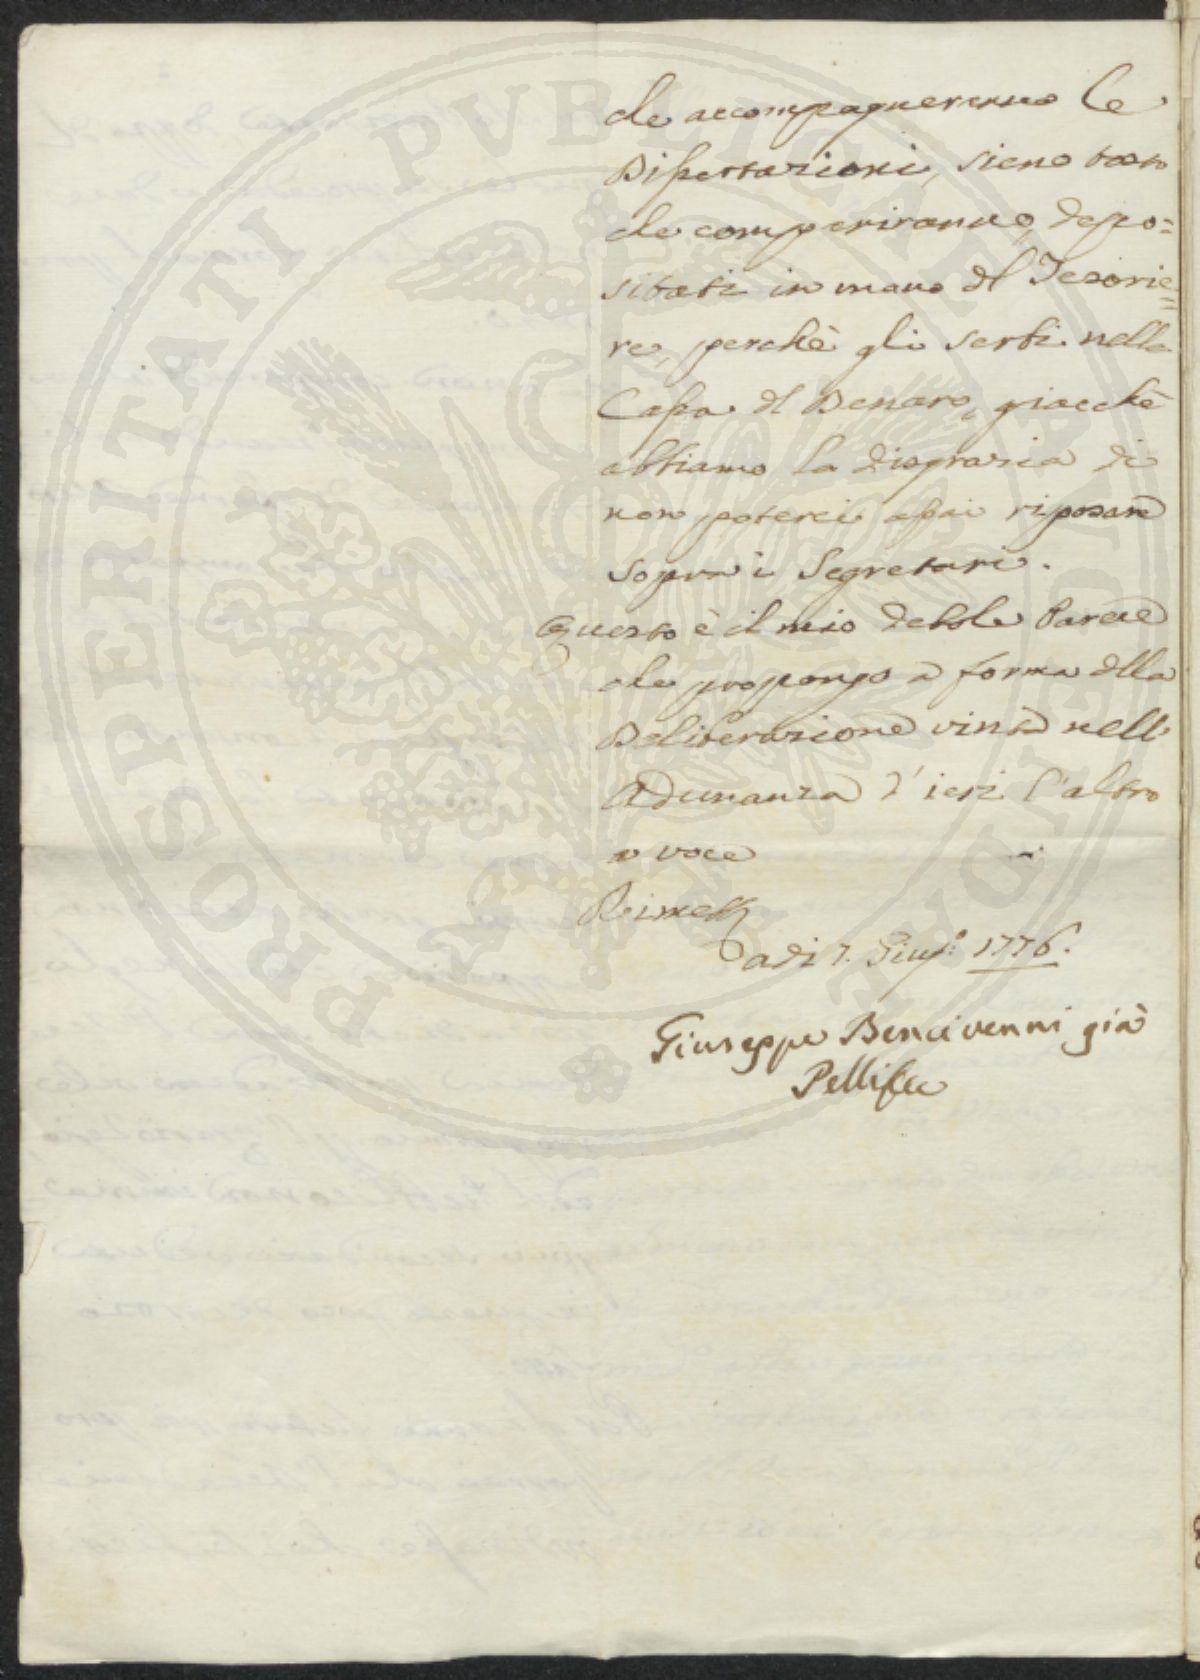 che accompagneranno le
Dissertazioni, sieno tosto
che compariranno, depo=
sitati in mano del Tesorie=
re, perchè gli serbi nella
Cassa del Denaro, giacchè
abbiamo la disgrazia di
non poterci assai riposare
sopra i Segretari.
Questo è il mio debole Parere
che propongo a forma della
Deliberazione vinta nell'
Adunanza d'ieri l'altro
a voce
adi 7. Giug.º 1776.
Giuseppe Bencivenni già
Pelli
PROSPERITATI PVBLICAE AVGENDAE